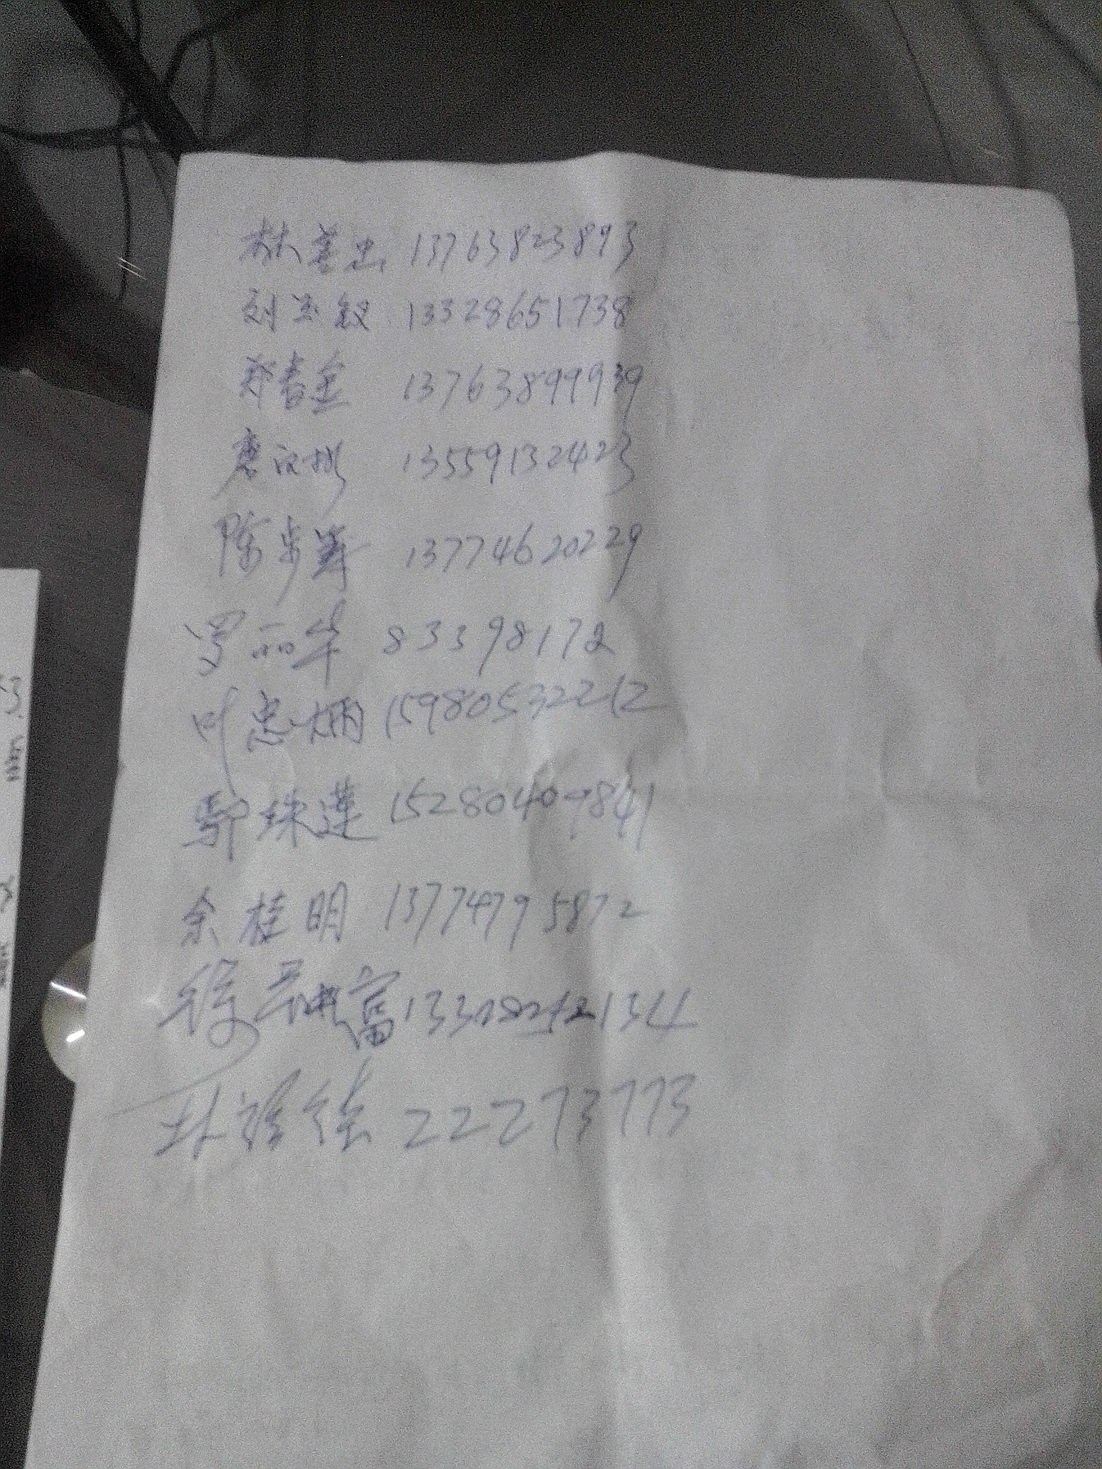 林善忠 13763823893
刘玉钗 13328651738
郑春金 13763899939
唐 13559132423
陈步 13774620229
罗丽华 83398172
叶惠炳 15980532212
鄢珠莲 15280409841
余桂明 13774795872
徐 富
林 22273773